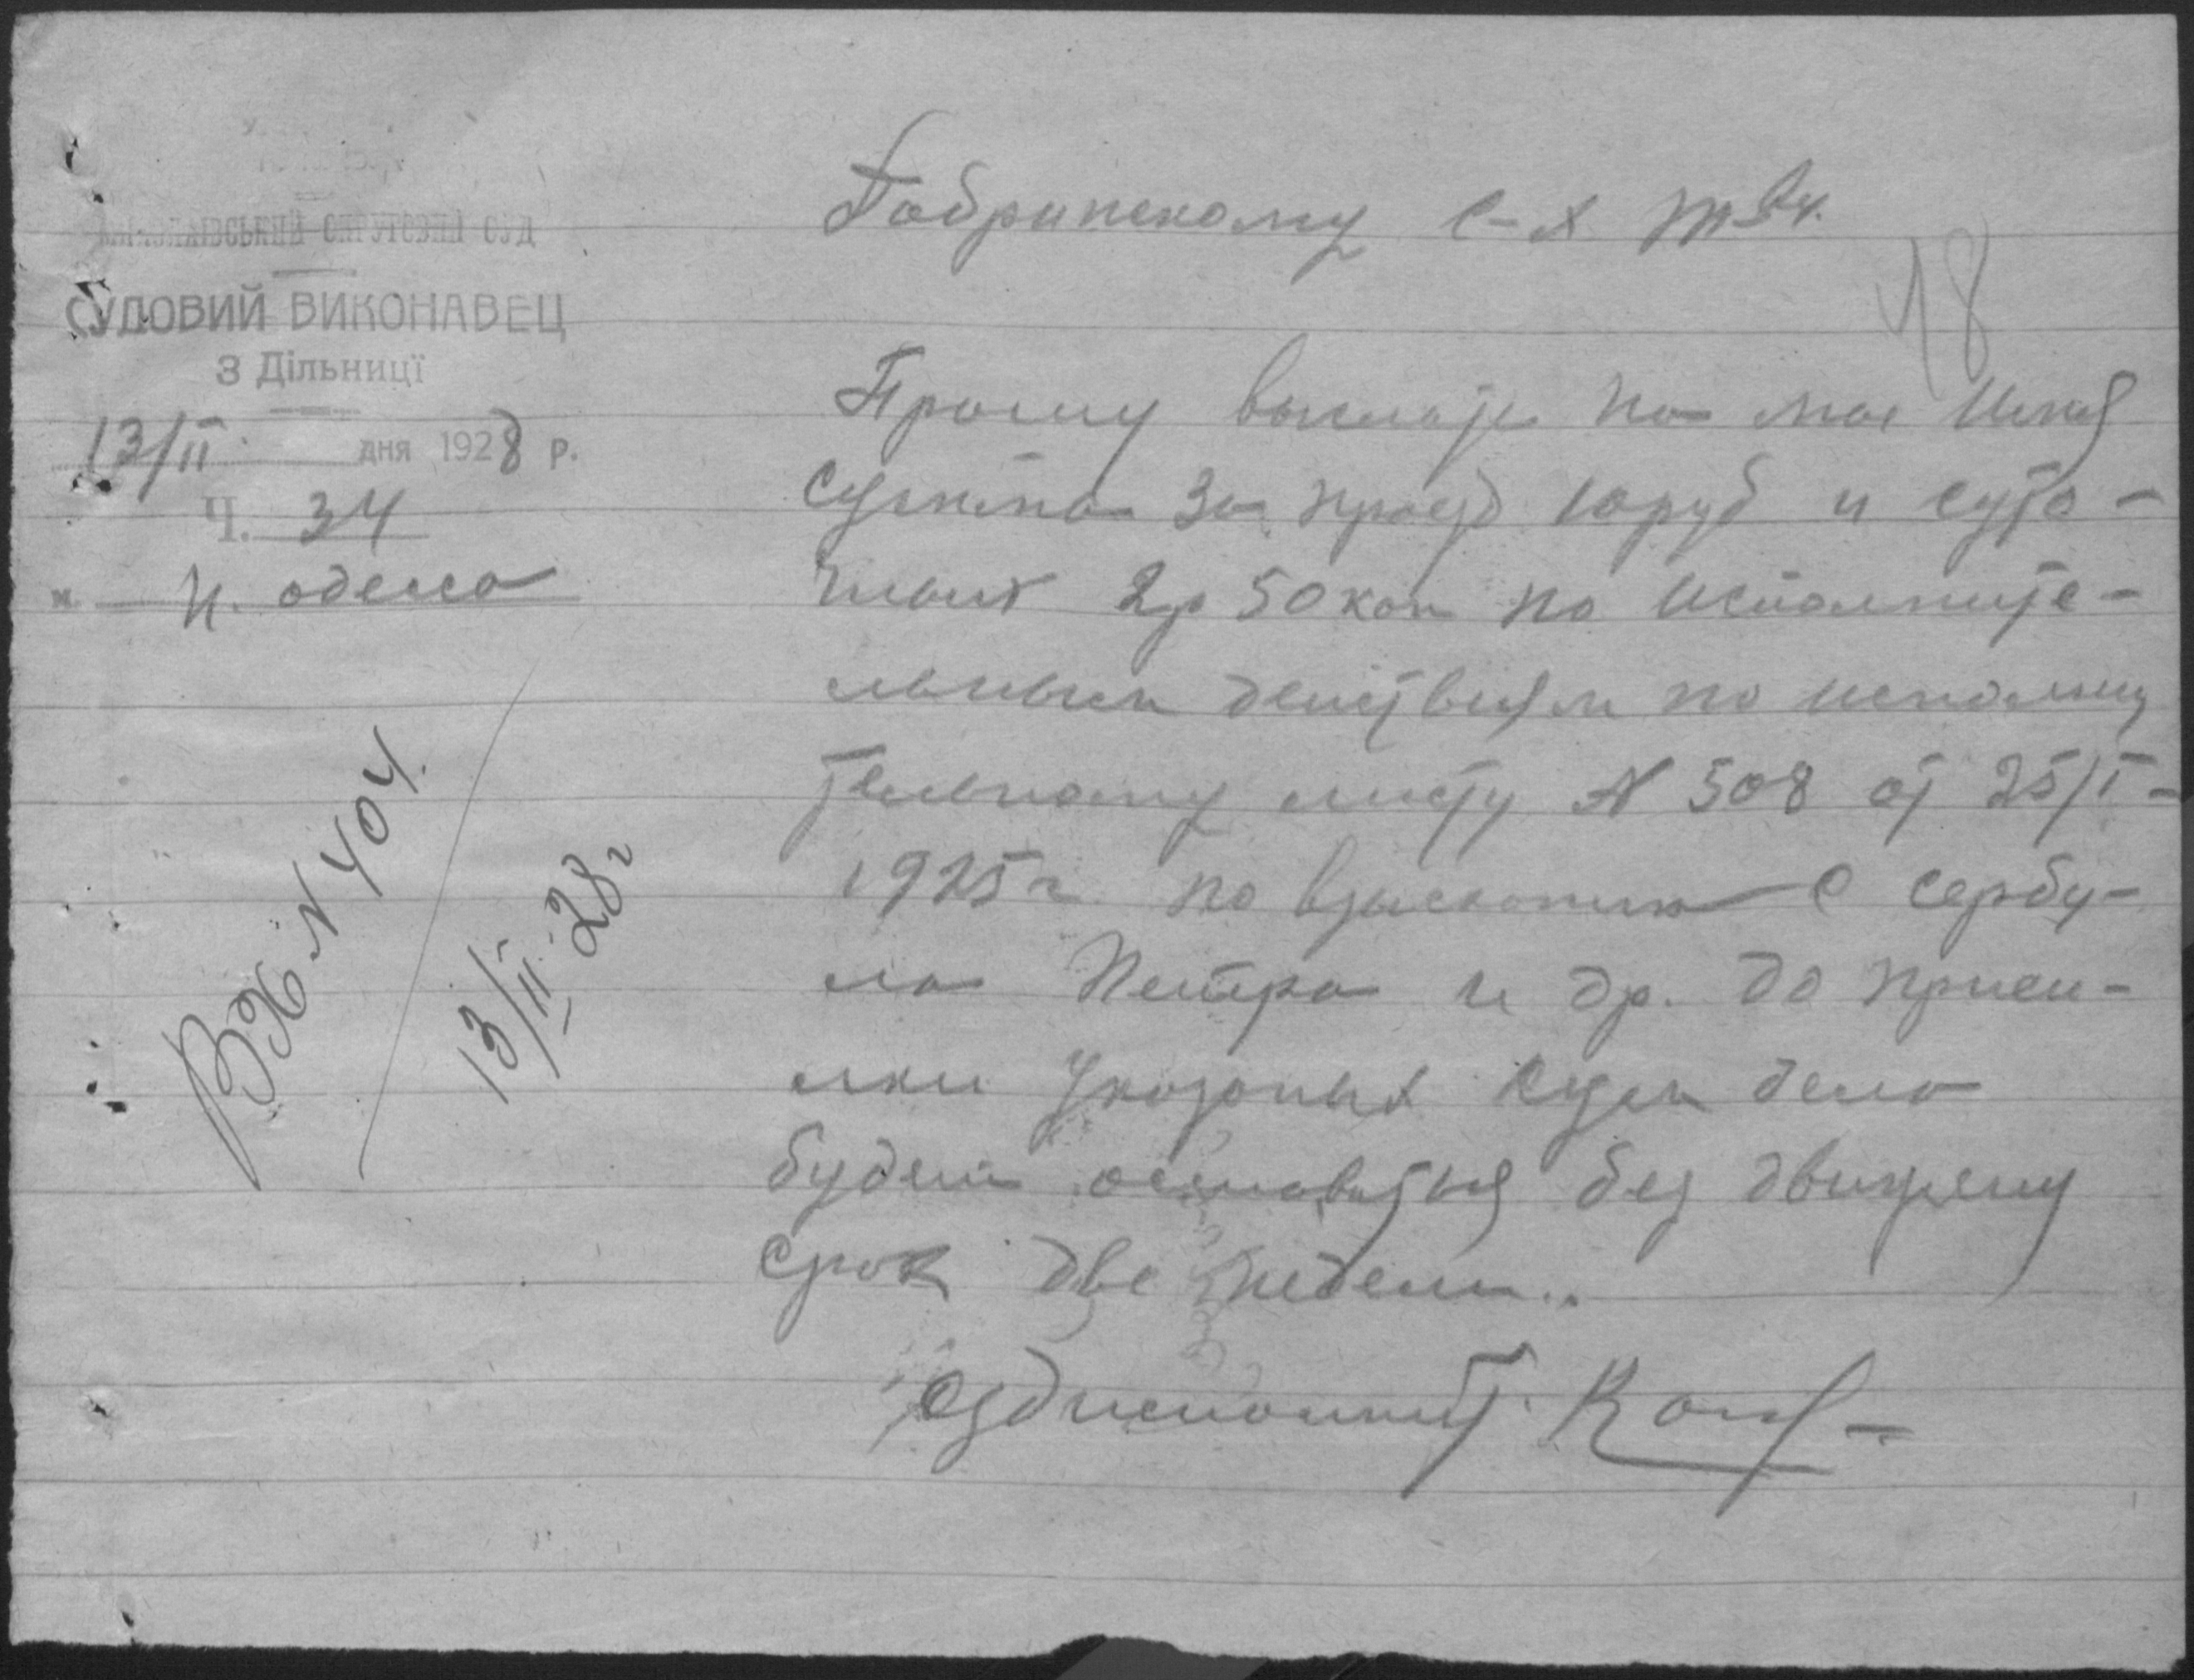 МИКОЛАЇВСЬКИЙ ОКРУГОВИЙ СУД
СУДОВИЙ ВИКОНАВЕЦ
3 Дільниції
13/II дня 1928 р.
Ч. 34
Н. одесса
Вх N 404.
13/II-28г
18
Добринскому с-х т-ву.
Прошу выслать на мое Имя
сумма за проезд 10 руб и суто-
чных 2р 50 коп по исполните-
льным действиям по исполни
тельному листу N 508 от 25/I-
1925 г. по взысканию с Сербу-
ла Петра и др. до присы-
лки Указаных сум дело
будет оставатся без движению
срок две недели..
Судисполнит.